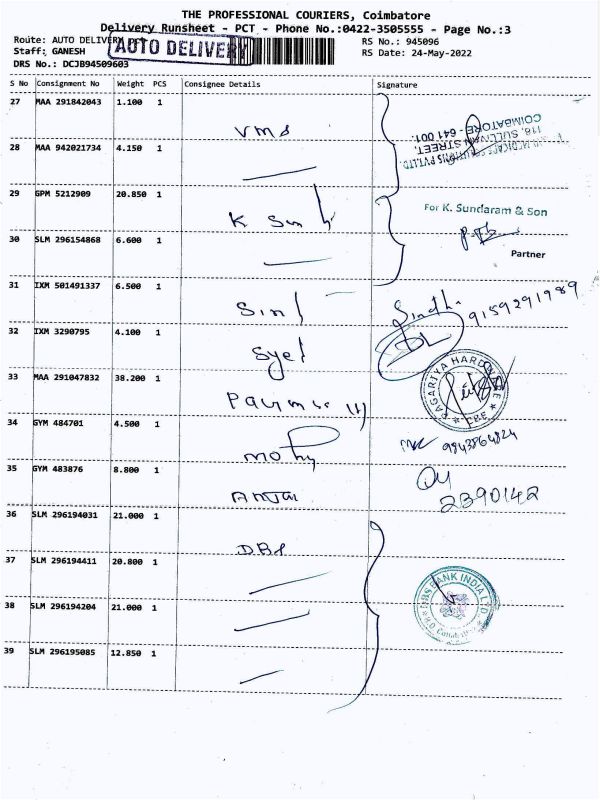 THE PROFESSIONAL COURIERS, Coimbatore
Delivery Runsheet - PCT - Phone No.:0422-3505555 - Page No.:3
Route: AUTO DELIVERY
AUTO DELIVERY
RS No.: 945096
Staff: GANESH
RS Date: 24-May-2022
DRS No.: DCJB94509603
S No Consignment No Weight PCS Consignee Details Signature
27 MAA 291842043 1.100 1
VMS
COIMBATORE - 641 001.
118, SULLIVAN STREET,
PVT.LTD.
28 MAA 942021734 4.150 1
29 GPM 5212909 20.850 1
K Sun
For K. Sundaram & Son
Partner
30 SLM 296154868 6.600 1
31 IXM 501491337 6.500 1
Sindhu 9159291989
32 IXM 3290795 4.100 1
Syed
33 MAA 291047832 38.200 1
PAGARIYA HARDWARE
CBE
34 GYM 484701 4.500 1
9943864824
35 GYM 483876 8.800 1
2390142
36 SLM 296194031 21.000 1
DBS
37 SLM 296194411 20.800 1
DBS BANK INDIA LTD
38 SLM 296194204 21.000 1
39 SLM 296195085 12.850 1